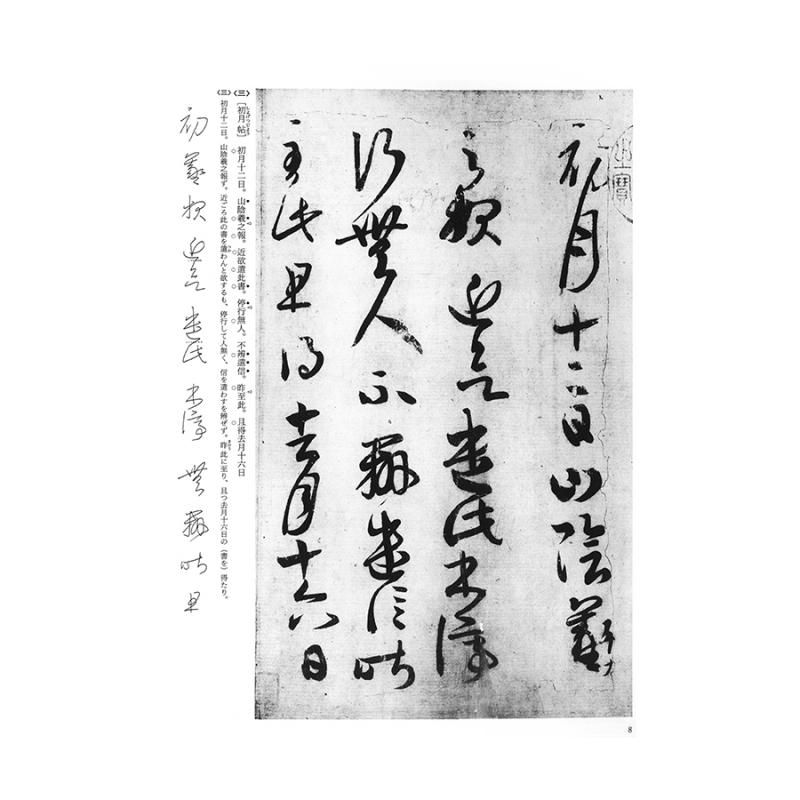 初月十二日山陰羲
之報近欲遣此書停
行無人不辨遣信昨
至此且得去月十六日
〈三〉〔初月帖〕 初月十二日。山陰羲之報。近欲遣此書。停行無人。不辨遣信。昨至此。且得去月十六日
〈三〉初月十二日。山陰羲之報ず。近ごろ此の書を遣わんと欲するも、停行して人無く、信を遣わすを辨ぜず。昨此に至り、且つ去月十六日の（書を）得たり。
初 羲 報 近欲 遣此 書停 無 辨 昨 且
8